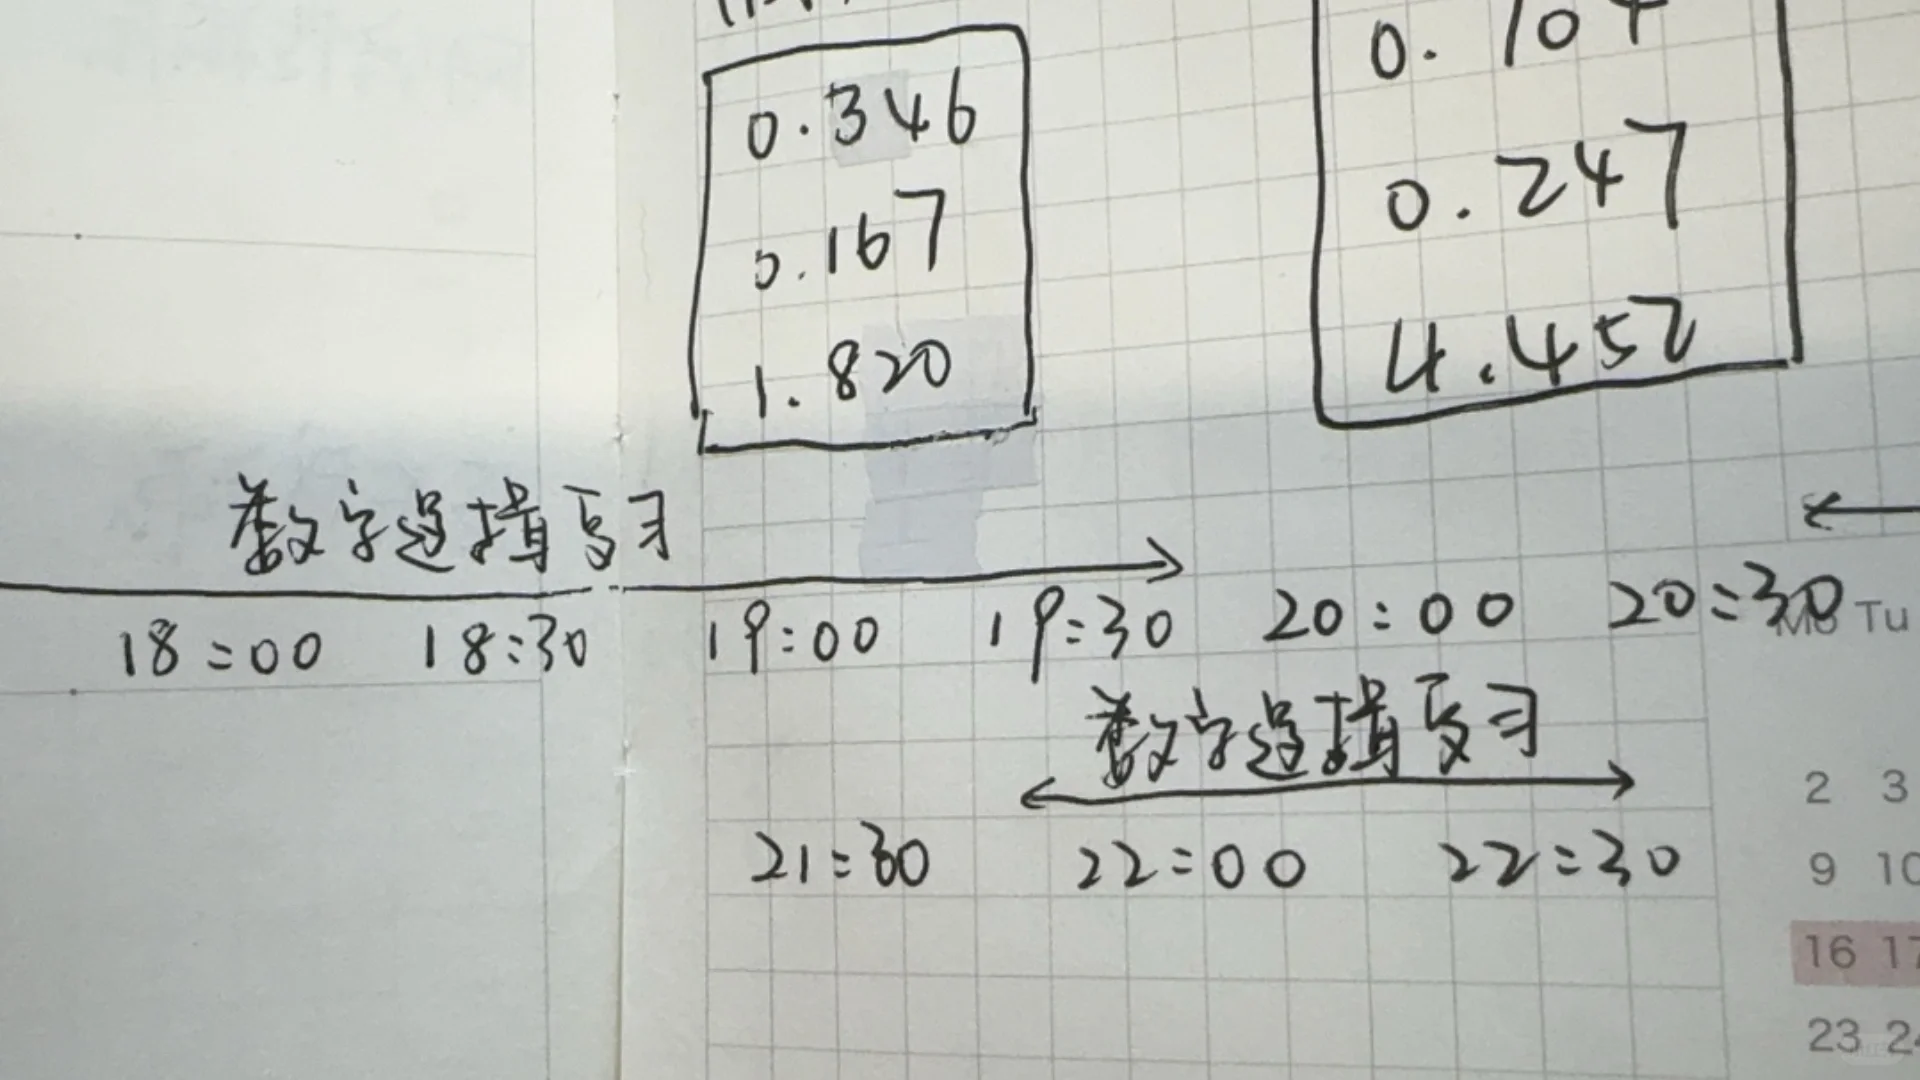 0.346
0.167
1.820
0.104
0.247
4.452
数字逻辑复习
18:00 18:30 19:00 19:30 20:00 20:30
数字逻辑复习
21:30 22:00 22:30
Tu
2 3
9 10
16 17
23 24